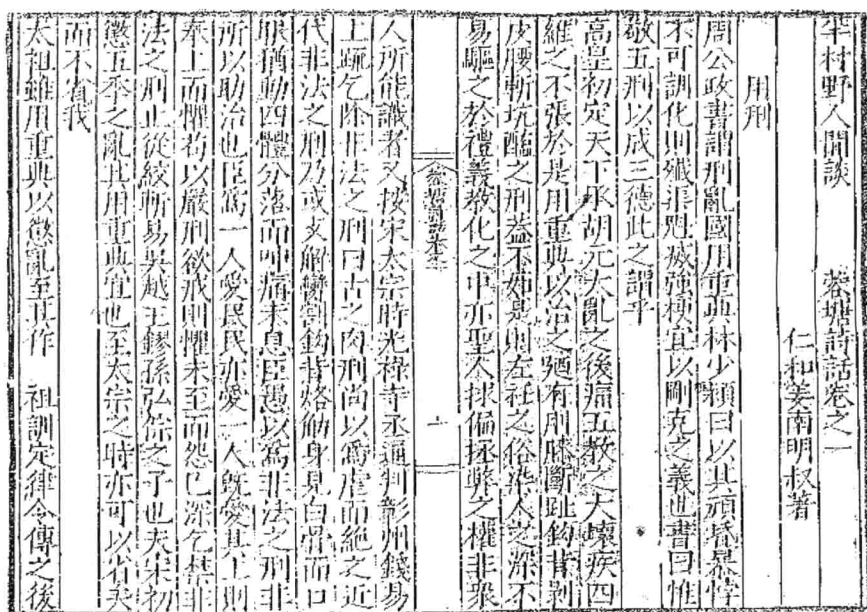 半村野人閒談　蓉塘詩話卷之一
仁和姜南明叔著
用刑
周公政書謂刑亂國用重典林少穎曰以其頑昏暴悖
不可訓化則殲渠魁滅強梗宜以剛克之義也書曰惟
敬五刑以成三德此之謂乎
高皇初定天下承胡元大亂之後痛五教之大壞疾四
維之不張於是用重典以治之廼有刖膝斷趾鈎背剥
皮腰斬坑醢之刑蓋不如是則左衽之俗染人之深不
易驅之於禮義教化之中亦聖人捄偏拯弊之權非衆
蓉塘詩話卷之一
一
人所能識者又按宋太宗時光祿寺丞通判彰州錢易
上疏乞除非法之刑曰古之肉刑尚以爲虐而絶之近
代非法之刑乃或支解臠割鈎背烙觔身見白骨而口
眼猶動四體分落而呻痛未息臣愚以爲非法之刑非
所以助治也臣爲一人愛民民亦愛一人旣愛其上則
奉上而懼若以嚴刑欲戒則懼未至而怨已深乞禁非
法之刑止從絞斬易吳越王鏐孫弘倧之子也夫宋初
懲五季之亂其用重典宜也至太宗之時亦可以省矣
而不省我
太祖雖用重典以懲亂至其作　祖訓定律令傳之後